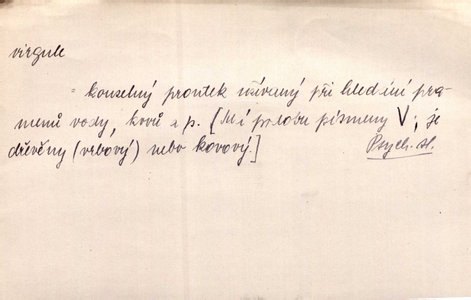 virgule
= kouzelný proutek užívaný při hledání pra-
menů vody, kovů a p. [Má podobu písmeny V, je
dřevěný (vrbový) nebo kovový.]
Psych. sl.